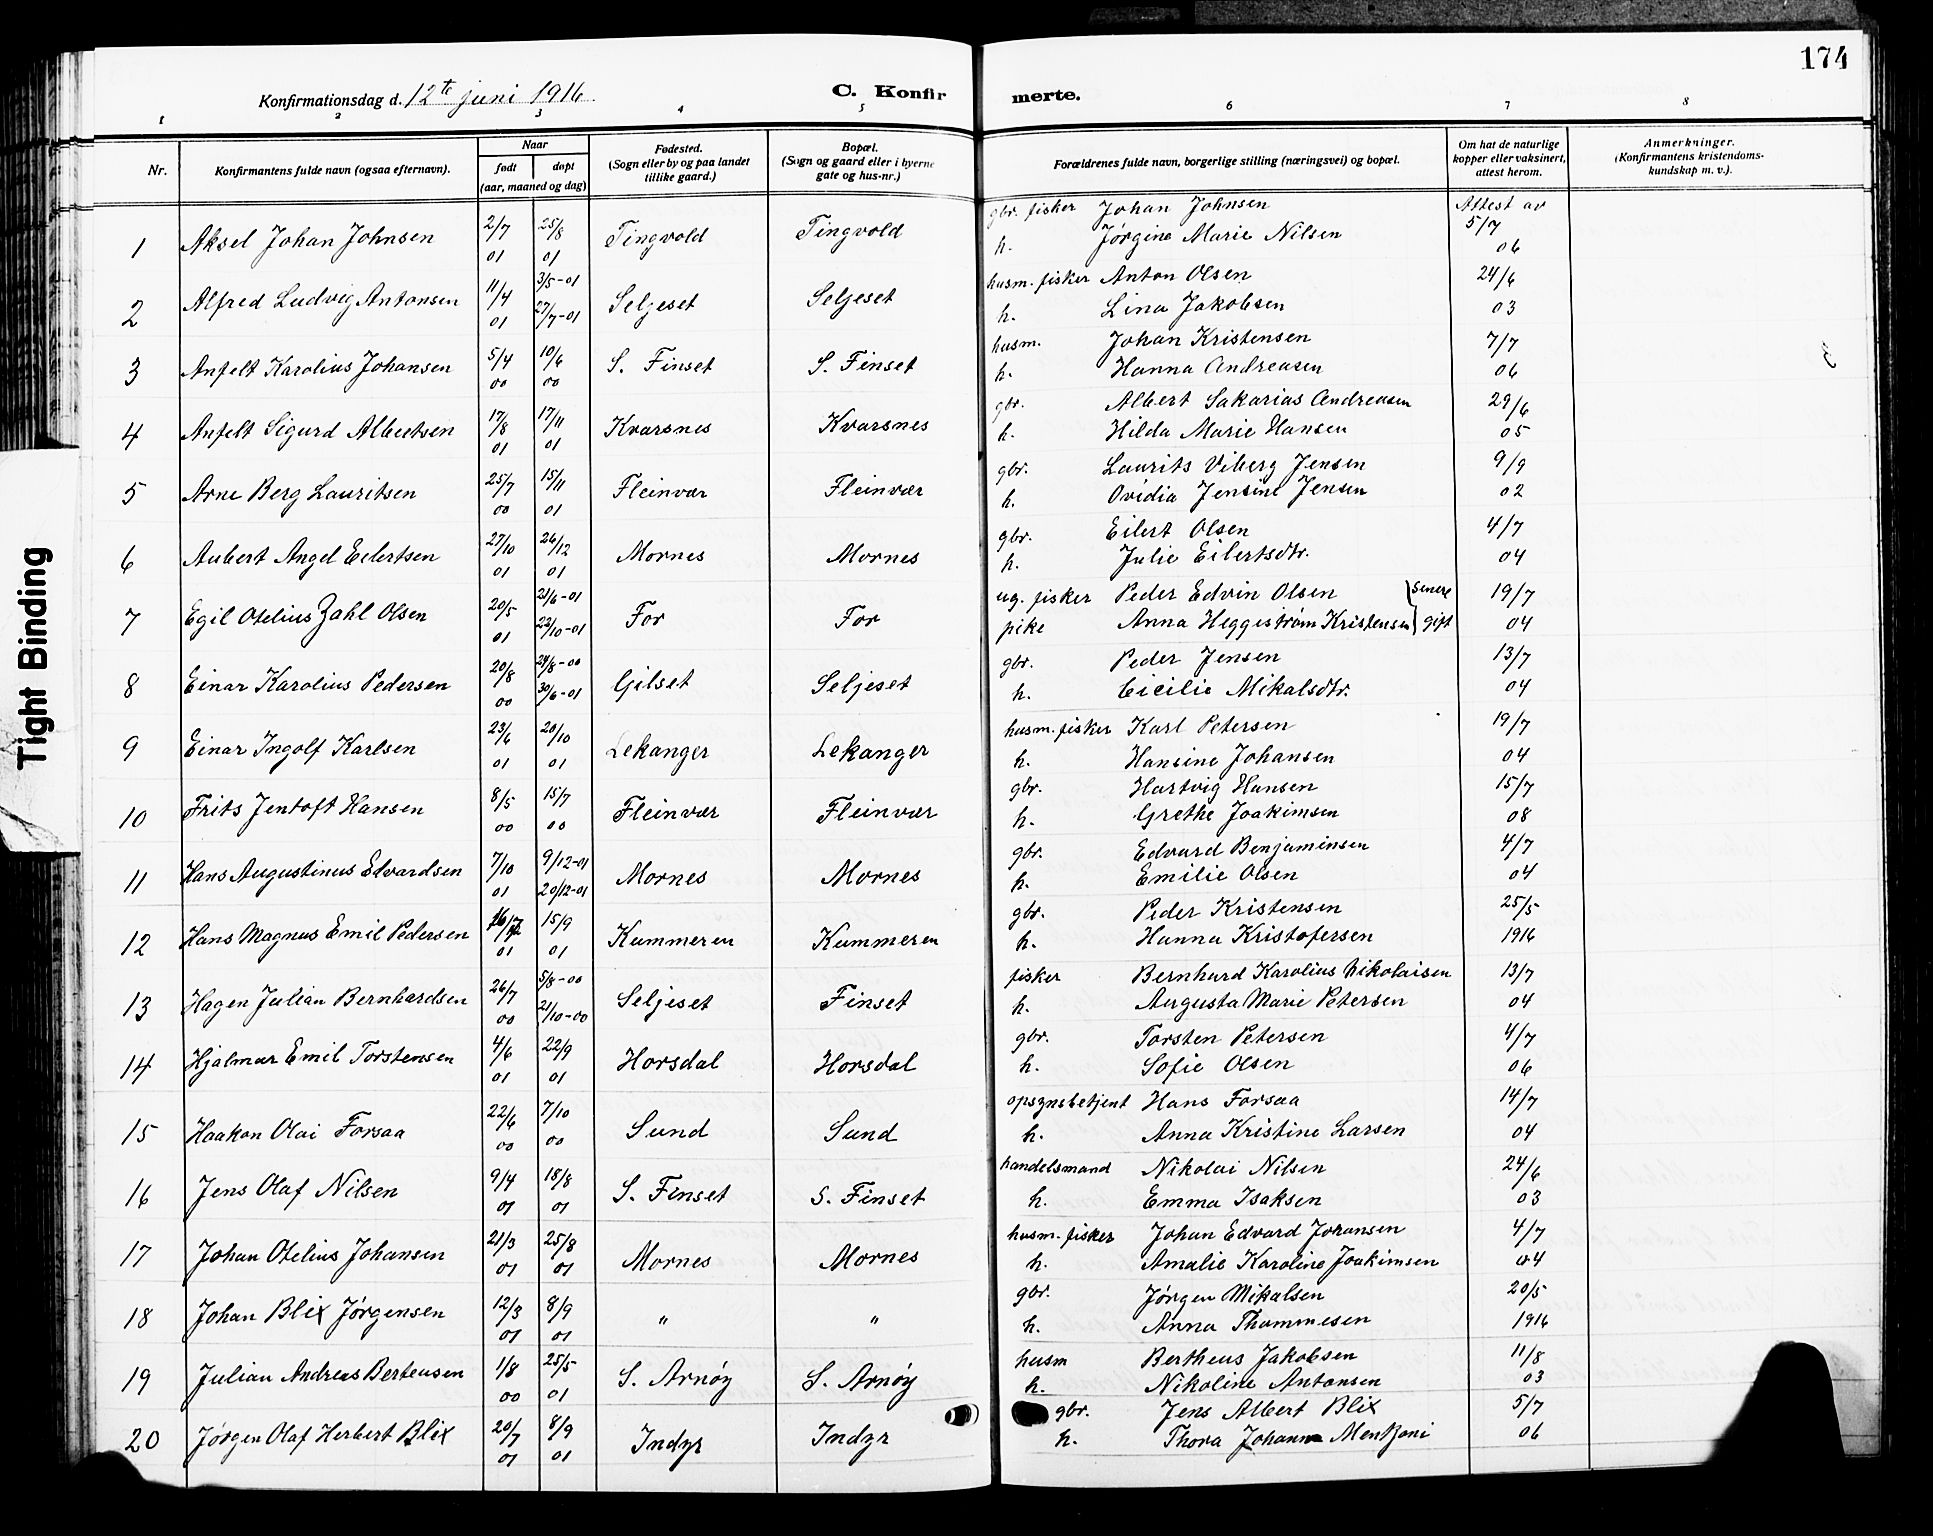 174
Konfirmationsdag d. 12te juni 1916.
C. Konfirmerte.
1 2 3 4 5 6 7 8
Nr.
Konfirmantens fulde navn (ogsaa efternavn).
Naar
født
døpt
(aar, maaned og dag)
Fødested.
(Sogn eller by og paa landet
tillike gaard.)
Bopæl.
(Sogn og gaard eller i byerne
gate og hus-nr.)
Forældrenes fulde navn, borgerlige stilling (næringsvei) og bopæl.
Om hat de naturlige
kopper eller vaksinert,
attest herom.
Anmerkninger.
(Konfirmantens kristendoms-
kundskap m. v.).
1 Aksel Johan Johnsen 2/7 01 25/8 01 Tingvold Tingvold gbr. fisker Johan Johnsen Attest av 5/7
h. Jørgine Marie Nilsen 06
2 Alfred Ludvig Antonsen 11/4 01 3/5-01 27/7-01 Seljeset Seljeset husm. fisker Anton Olsen 24/6
h. Lina Jakobsen 03
3 Anfelt Karolius Johansen 5/4 00 10/6 00 S. Finset S. Finset husm. Johan Kristensen 7/7
h. Hanna Andreasen 06
4 Anfelt Sigurd Albertsen 17/8 01 17/11 01 Kvarsnes Kvarsnes gbr. Albert Sakarias Andreasen 29/6
h. Hilda Marie Hansen 05
5 Arne Berg Lauritsen 25/7 00 15/11 01 Fleinvær Fleinvær gbr. Laurits Viberg Jensen 9/9
h. Ovidia Jensine Jensen 02
6 Aubert Angel Eilertsen 27/10 01 26/12 01 Mornes Mornes gbr. Eilert Olsen 4/7
h. Julie Eilertsdtr. 04
7 Egil Otelius Zahl Olsen 20/5 01 21/6-01 22/10-01 For For ug. fisker Peder Edvin Olsen } senere 19/7
pike Anna Heggistrøm Kristensen } gift 04
8 Einar Karolius Pedersen 20/8 00 24/8-00 30/6-01 Gilset Seljeset gbr. Peder Jensen 13/7
h. Cicilie Mikalsdtr. 04
9 Einar Ingolf Karlsen 23/6 01 20/10 01 Lekanger Lekanger husm. fisker Karl Petersen 19/7
h. Hansine Johansen 04
10 Frits Jentoft Hansen 8/5 00 15/7 00 Fleinvær Fleinvær gbr. Hartvig Hansen 15/7
h. Grethe Joakimsen 08
11 Hans Augustinus Edvardsen 7/10 01 9/12-01 20/12-01 Mornes Mornes gbr. Edvard Benjaminsen 4/7
h. Emilie Olsen 04
12 Hans Magnus Emil Pedersen 01 15/9 01 Kummeren Kummeren gbr. Peder Kristensen 25/5
h. Hanna Kristofersen 1916
13 Hagen Julian Bernhardsen 26/7 00 5/8-00 21/10-00 Seljeset Finset fisker Bernhard Karolius Nikolaisen 13/7
h. Augusta Marie Petersen 04
14 Hjalmar Emil Torstensen 4/6 01 22/9 01 Horsdal Horsdal gbr. Torsten Petersen 4/7
h. Sofie Olsen 06
15 Haakon Olai Forsaa 22/6 00 7/10 00 Sund Sund opsynsbetjent Hans Forsaa 14/7
h. Anna Kristine Larsen 04
16 Jens Olaf Nilsen 9/4 01 18/8 01 S. Finset S. Finset handelsmand Nikolai Nilsen 24/6
h. Emma Isaksen 03
17 Johan Otelius Johansen 21/3 01 25/8 01 Mornes Mornes husm. fisker Johan Edvard Johansen 4/7
h. Amalie Karoline Joakimsen 04
18 Johan Blix Jørgensen 12/3 01 8/9 01 " " gbr. Jørgen Mikalsen 20/5
h. Anna Thommesen 1916
19 Julian Andreas Berteusen 1/8 00 25/5 01 S. Arnøy S. Arnøy husm Bertheus Jakobsen 11/8
h. Nikoline Antonsen 03
20 Jørgen Olaf Herbert Blix 20/7 01 8/9 01 Indyr Indyr gbr. Jens Albert Blix 5/7
h. Thora Johanne Mentzoni 06
Tight Binding